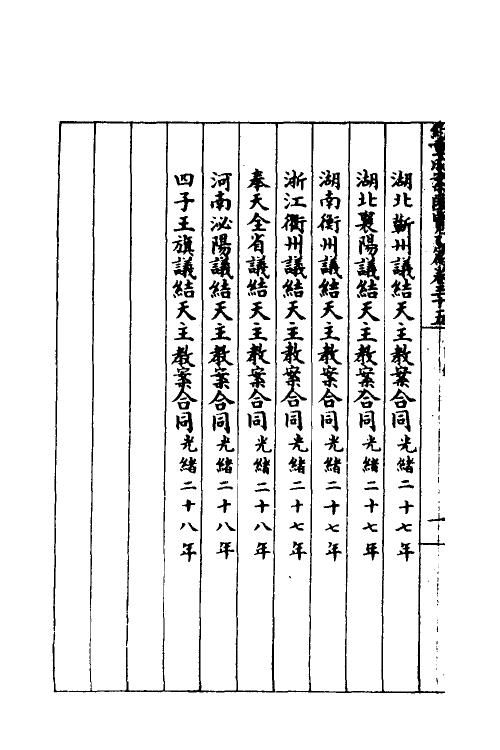 湖北蘄州議結天主教案合同光緒二十七年
湖北襄陽議結天主教案合同光緒二十七年
湖南衡州議結天主教案合同光緒二十七年
浙江衢州議結天主教案合同光緒二十七年
奉天全省議結天主教案合同光緒二十八年
河南泌陽議結天主教案合同光緒二十八年
四子王旗議結天主教案合同光緒二十八年